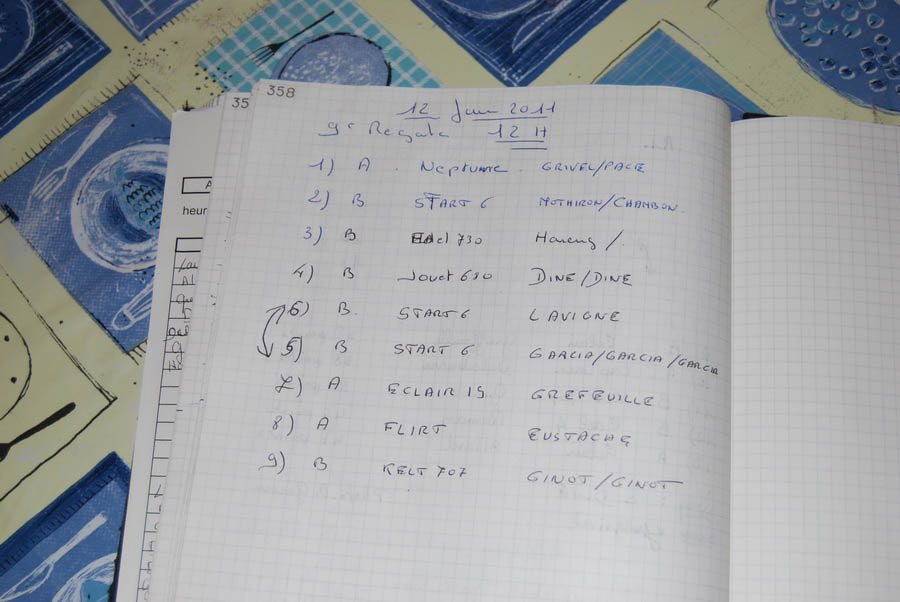 358
35
12 Juin 2011
9e Regata 12 H
1) A Neptune GRIVEL/PACE
2) B START 6 MOTHIRON/CHAMBON
3) B Edel 730 /
4) B Jouet 630 DINE/DINE
6) B START 6 LAVIGNE
5) B START 6 GARCIA/GARCIA/GARCIA
7) A ECLAIR 15 GREFEUILLE
8) A FLIRT EUSTACHE
9) B KELT 707 GINOT/GINOT
A
heur